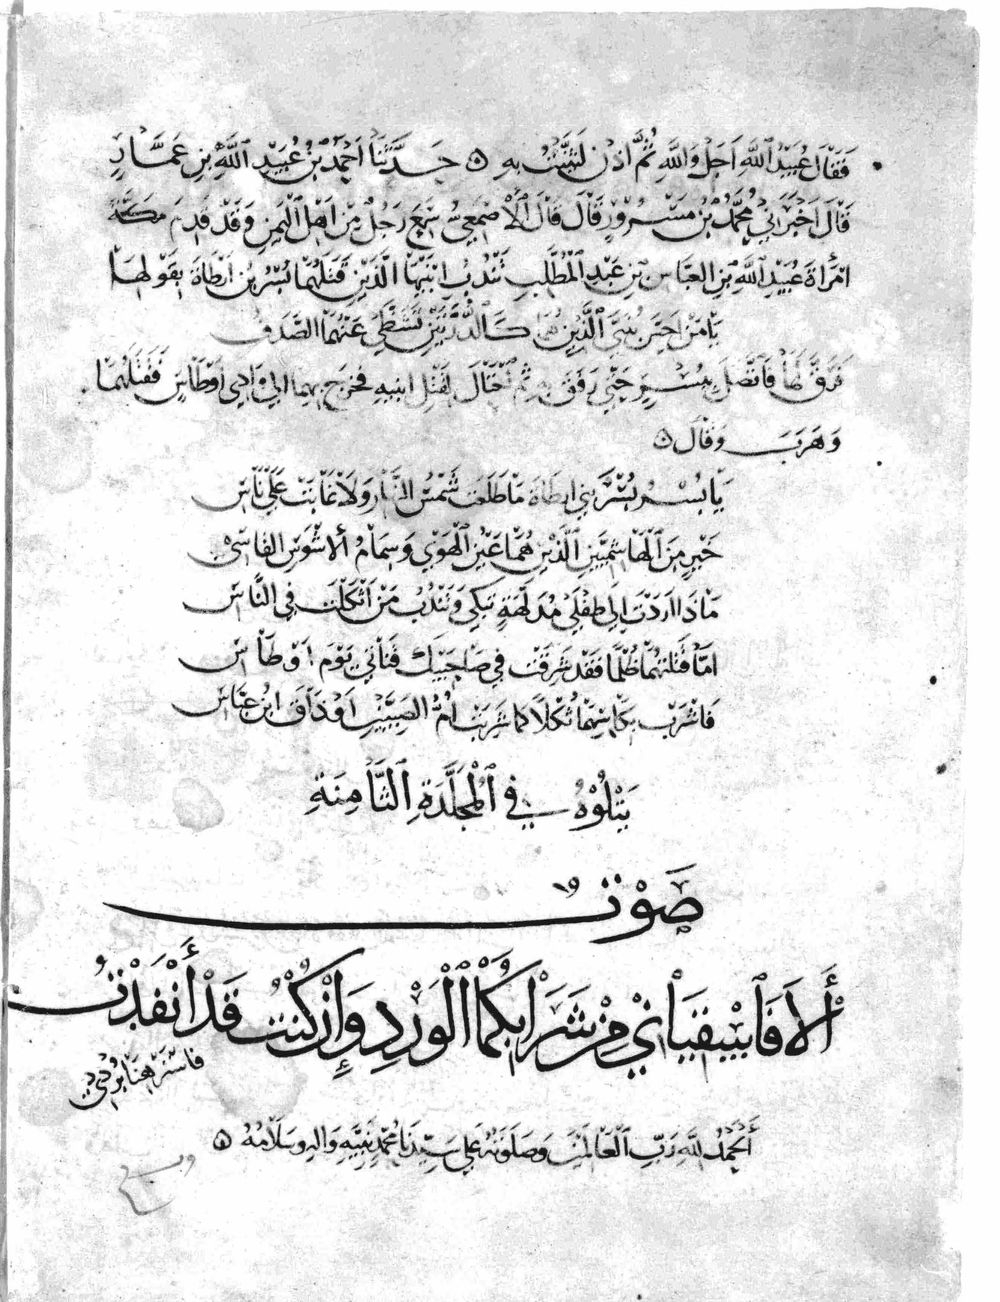 فَقَالَ عُبَيْدُ اللَّهِ اَجَلْ وَاللَّهِ ثُمَّ اذن لَيَثْبُتُ بِهِ ٥ حَدَّثَنَا اَحْمَدُ بْنُ عُبَيْدِ اللَّهِ بنِ عَمَّارٍ
قَالَ اَخْبَرَنِي مُحَمَّدُ بْنُ مَسْرُورٍ قَالَ قَالَ الأَصْمَعِيُّ سَمِعَ رَجُلٌ مِنْ اَهْلِ الْيَمَنِ وَقَدْ قَدِمَ مَكَّةَ
امْرَأةَ عُبَيْدِ اللَّهِ بْنِ العَبَّاسِ بْنِ عَبْدِ الْمُطَّلِبِ تَنْدُبُ ابْنَيْهَا الَّذَيْنِ قَتَلَهُمَا بُسْرُ بن اَرْطَاةَ بِقَوْلِهَا
يَا مَنْ اَحَسَّ بُنَيَّ الَّذَيْنِ هُمَا كَالدُّرَّتَيْنِ تَشَظَّى عَنْهُمَا الصَّدَفُ
فَرَقَّ لَهَا فَاتَّصَلَ بِبُسْرٍ حَتَّى وَثِقَ بِهِ ثُمَّ احْتَالَ لِقَتْلِ ابْنَيْهِ فَخَرَجَ بِهِمَا الى وَادِي اَوْطَاسٍ فَقَتَلَهُمَا
وَهَرَبَ وَقَالَ ٥
يَا بُسْرُ بُسْرَ بَنِي ارطَاةَ مَا طَلَعَتْ شَمْسُ النَّهَارِ وَلَا غَابَتْ عَلَى نَاسِ
خَيْرٍ مِنَ الْهَاشِمِيَّيْنِ الَّذَيْنِ هُمَا عَيْنُ الْهَوَى وَسِمَامُ الاشْوَسِ القَاسِي
مَاذَا اَرَدْتَ اِلَى طِفْلَيْ مُدَلَّهَةٍ تَبْكِي وَتَنْدُبُ مَنْ اَثْكَلْتَ فِي النَّاسِ
اِمَّا قَتَلْتَهُمَا ظُلْمًا فَقَدْ شَرِقَتْ فِي صَاحِبَيْكَ قَنَاتِي يَوْمَ اَوْطَاسِ
فَاشْرَبْ بِكَأْسِهِمَا ثُكْلاً كَمَا شَرِبَتْ اُمُّ الصَّبِيَّيْنِ اَوْ ذَاقَ ابْنُ عَبَّاسِ
يَتْلُوْهُ فِي الْمُجَلَّدَةِ الثَّامِنَةِ
صَوْتٌ
أَلاَ فَاسْقِيَانِيْ مِنْ شَرَابِكُمَا الْوَرْدِ وَإِنْ كُنْتُ قَدْ أَنْفَدْتُ
فَاسْتَرْهِنَا بُرْدِي
أَلْحَمْدُ لِلَّهِ رَبِّ الْعَالَمِيْنَ وَصَلَوَتُهُ عَلَى سَيِّدِنَا مُحَمَّدٍ نَبِيِّهِ وَآلِهِ وَسَلَامُهُ ٥